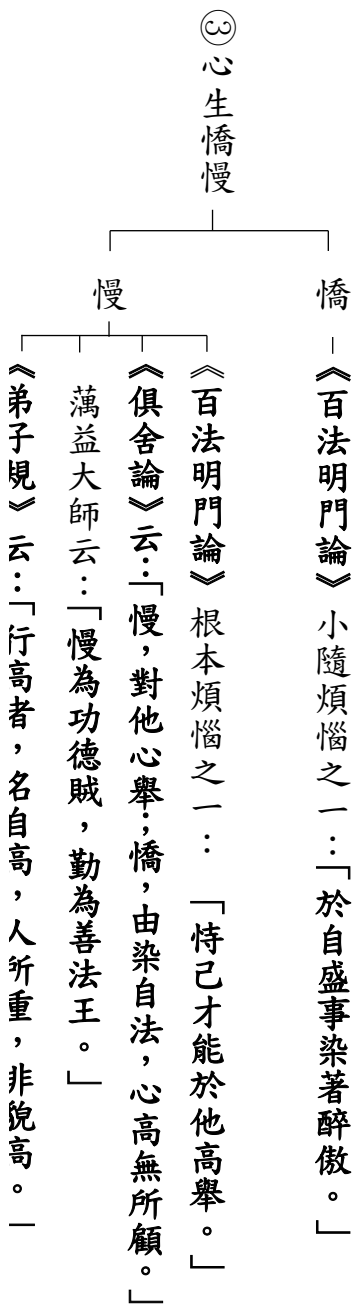 ③心生憍慢
憍
《百法明門論》小隨煩惱之一：「於自盛事染著醉傲。」
慢
《百法明門論》根本煩惱之一：「恃己才能於他高舉。」
《俱舍論》云：「慢，對他心舉；憍，由染自法，心高無所顧。」
蕅益大師云：「慢為功德賊，勤為善法王。」
《弟子規》云：「行高者，名自高，人所重，非貌高。」